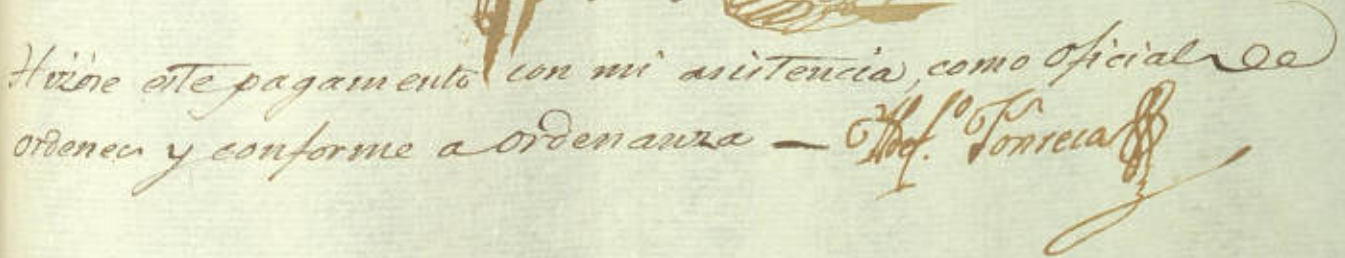 Hizose este pagamento con mi asistencia, como oficial de
ordenes y conforme a ordenanza — Ildef.º Fonseca